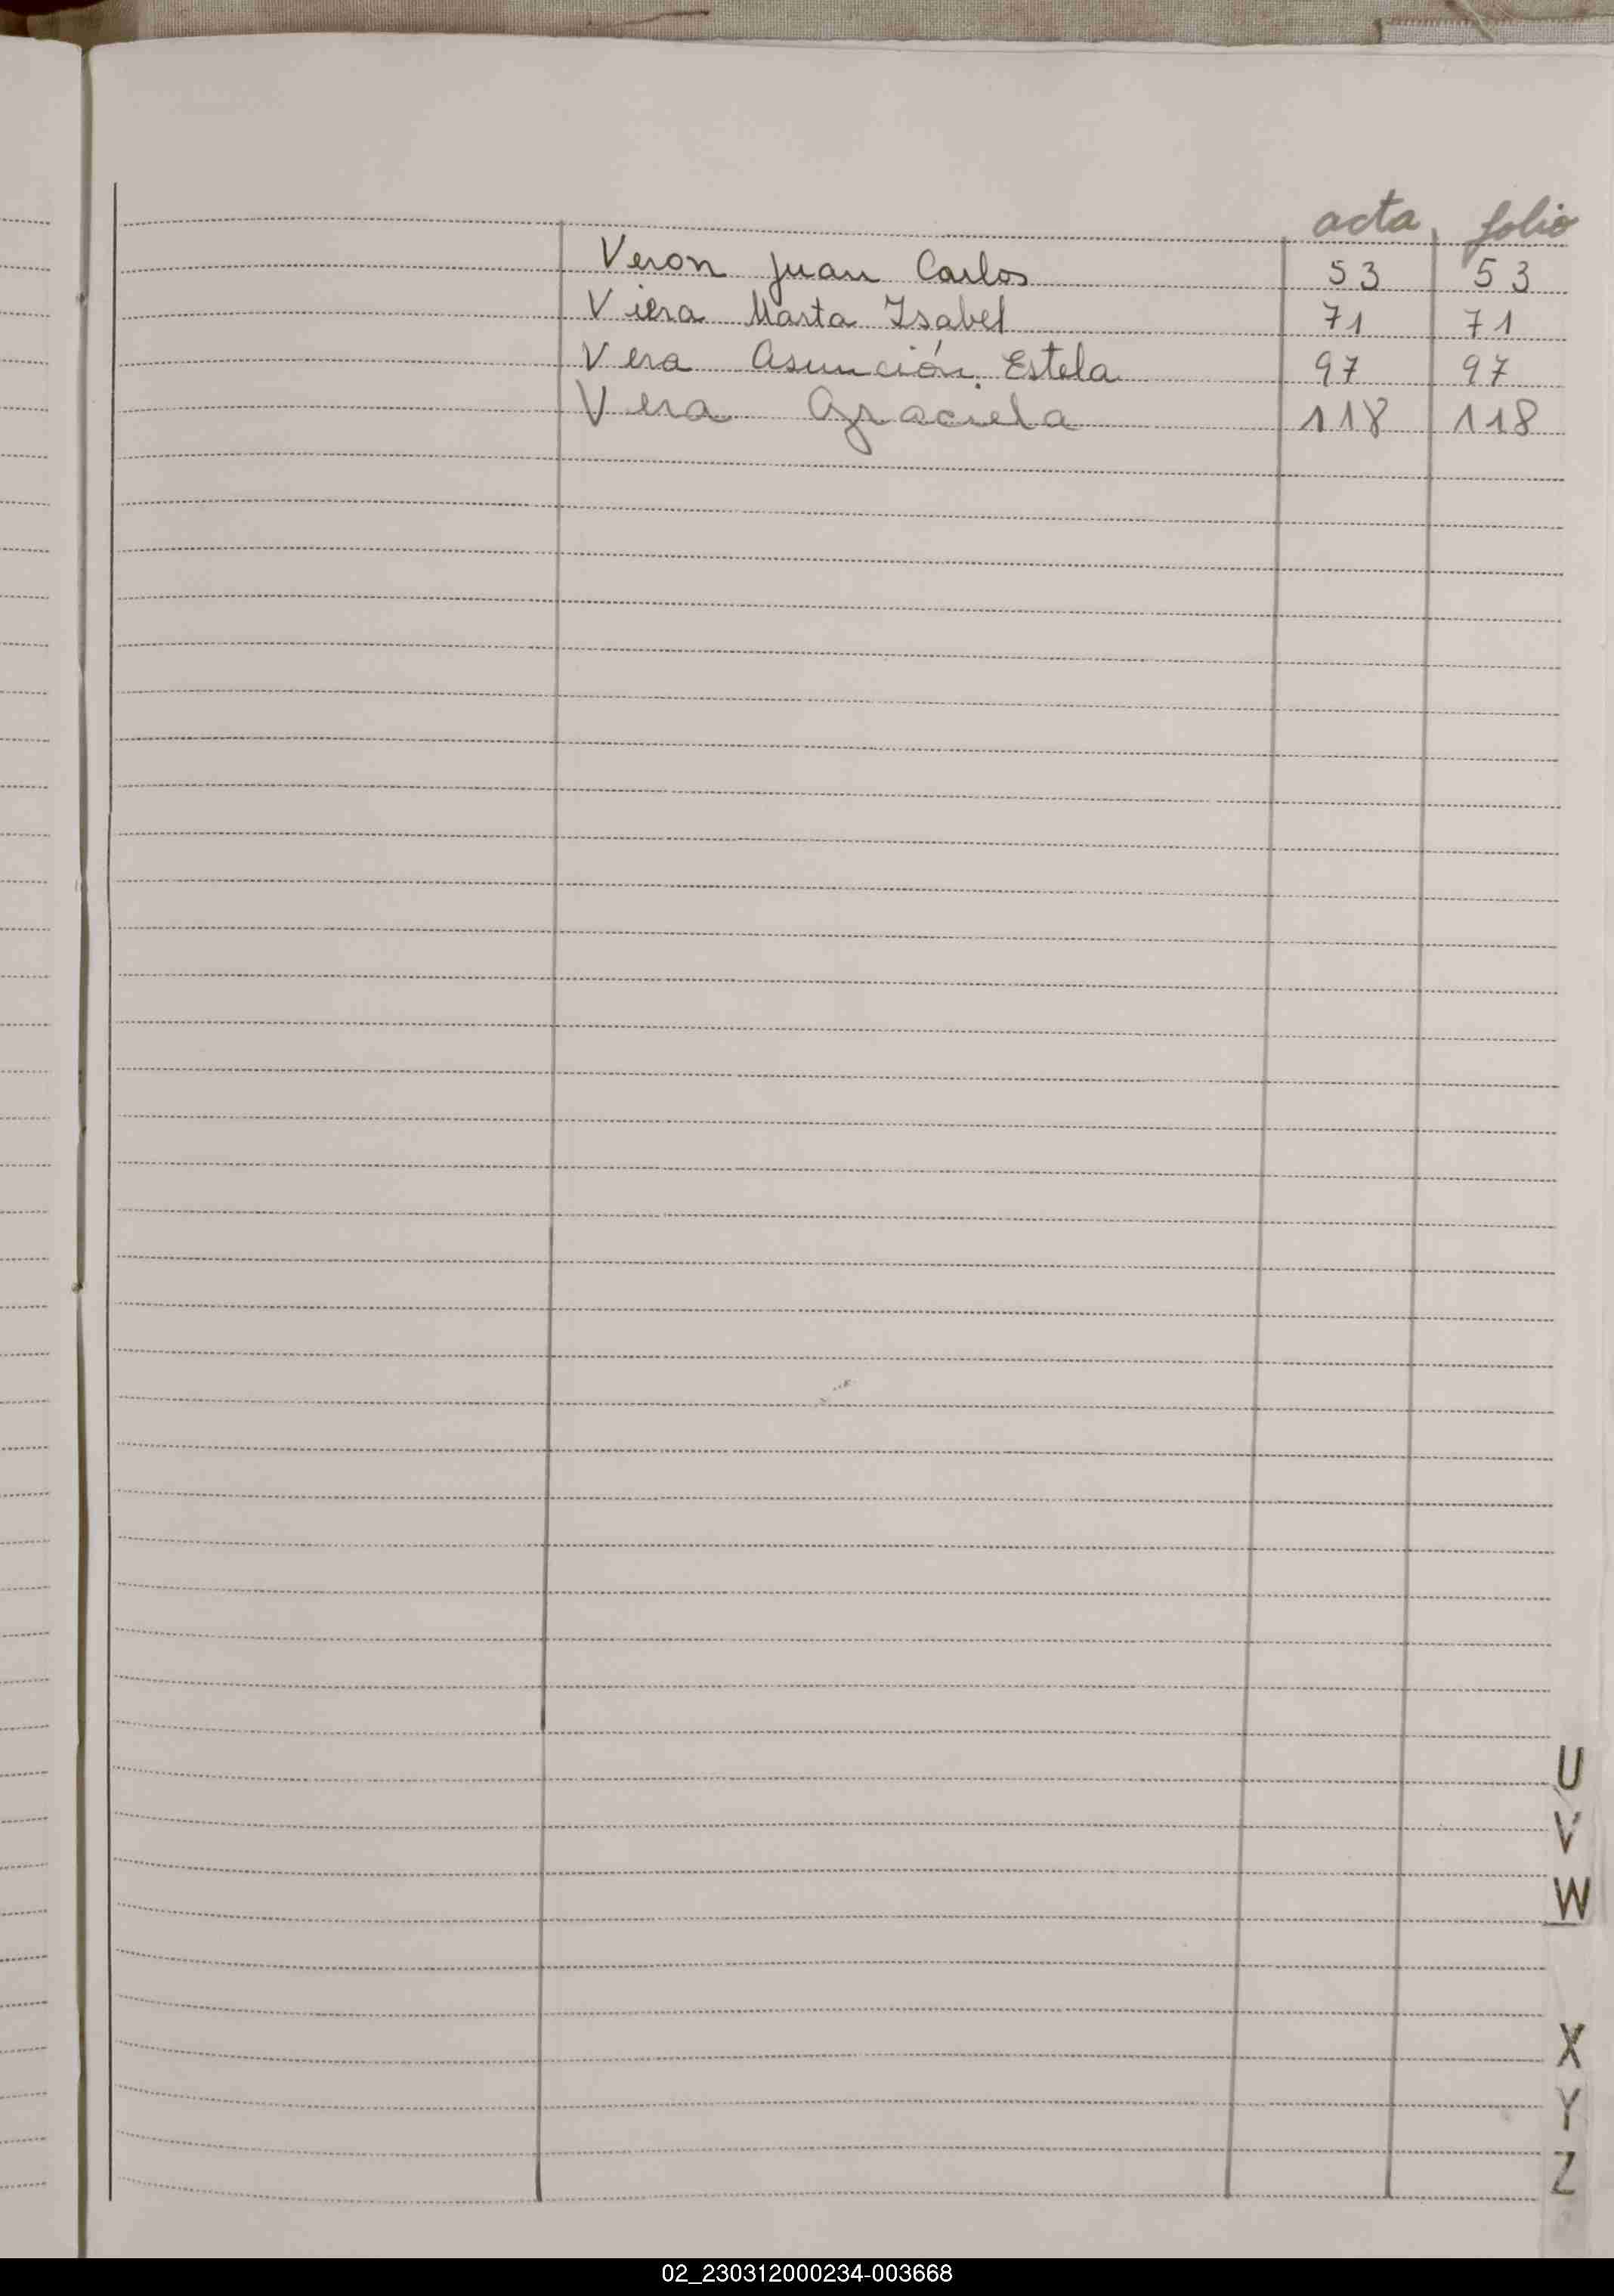 acta folio
Veron Juan Carlos 53 53
Viera Marta Isabel 71 71
Vera Asunción Estela 97 97
Vera Graciela 118 118
U
V
W
X
Y
Z
02_230312000234-003668